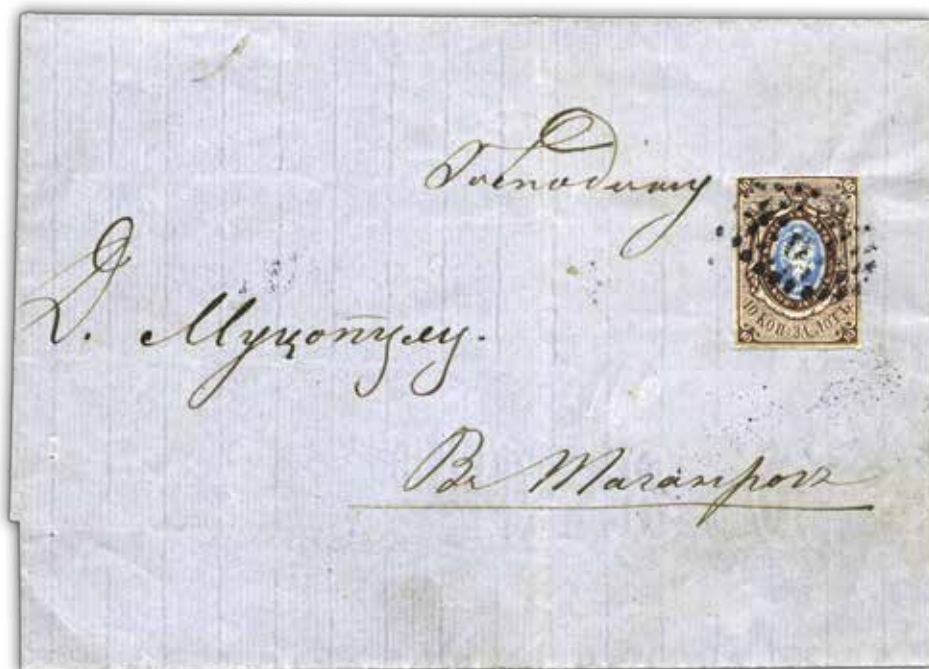 Господину
Д. Муцопулу.
Въ Таганрогъ
10 КОП. ЗА ЛОТЪ